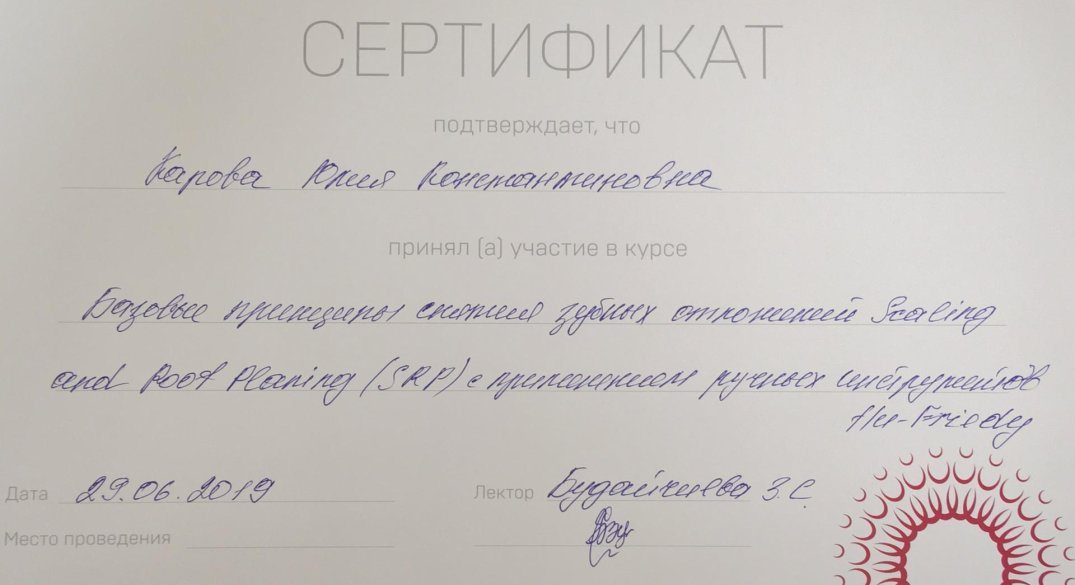 СЕРТИФИКАТ
подтверждает, что
Карова Юлия Константиновна
принял (а) участие в курсе
Базовые принципы снятия зубных отложений Scaling
and Root Planing (SRP) с применением ручных инструментов
Hu-Friedy
Дата 29.06.2019
Лектор Будайчиева З.С.
Место проведения